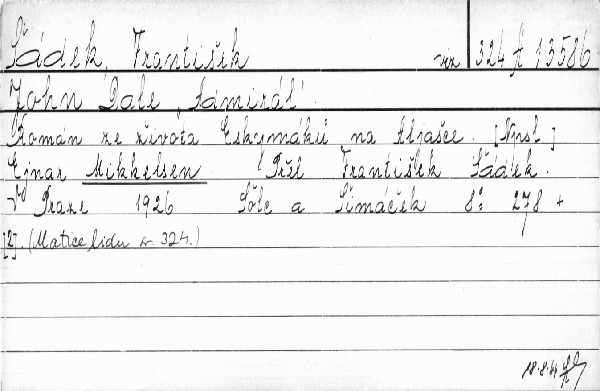 Šádek, František viz 324 A 13586
John Dale „Admirál“.
Román ze života Eskymáků na Aljašce. [Npsl.]
Ejnar Mikkelsen. Přel. František Šádek.
V Praze 1926 Šolc a Šimáček 8° 278 +
[2]. (Matice lidu r. 324.)
18.8.44